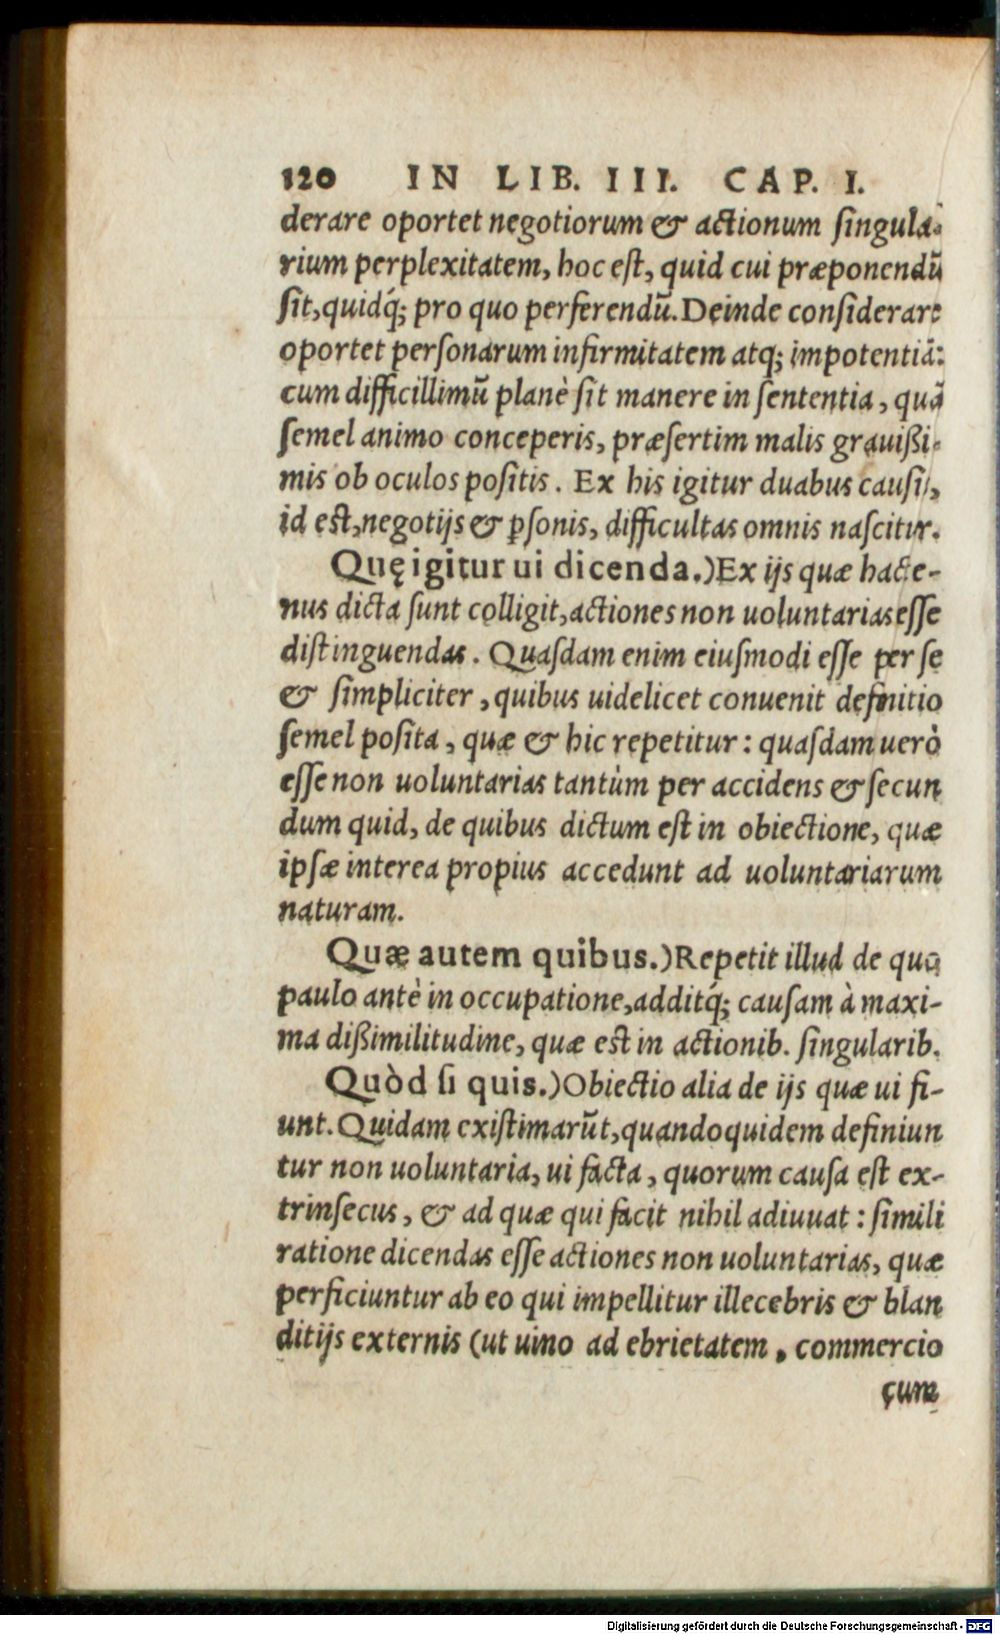 120 IN LIB. III. CAP. I.
derare oportet negotiorum & actionum ſingula-
rium perplexitatem, hoc eſt, quid cui præponendū
ſit, quidq́; pro quo perferendū. Deinde conſiderare
oportet perſonarum infirmitatem atq; impotentiā:
cum difficillimū planè ſit manere in ſententia, quā
ſemel animo conceperis, præſertim malis grauißi-
mis ob oculos poſitis. Ex his igitur duabus cauſis,
id eſt, negotijs & ꝑſonis, difficultas omnis naſcitur.
Quę igitur ui dicenda.) Ex ijs quæ hacte-
nus dicta ſunt colligit, actiones non uoluntarias eſſe
diſtinguendas. Quaſdam enim eiuſmodi eſſe per ſe
& ſimpliciter, quibus uidelicet conuenit definitio
ſemel poſita, quæ & hic repetitur: quaſdam uerò
eſſe non uoluntarias tantùm per accidens & ſecun
dum quid, de quibus dictum eſt in obiectione, quæ
ipſæ interea propius accedunt ad uoluntariarum
naturam.
Quæ autem quibus.) Repetit illud de quo
paulo antè in occupatione, additq́; cauſam à maxi-
ma dißimilitudine, quæ eſt in actionib. ſingularib.
Quòd ſi quis.) Obiectio alia de ijs quæ ui fi-
unt. Quidam exiſtimarūt, quandoquidem definiun
tur non uoluntaria, ui facta, quorum cauſa eſt ex-
trinſecus, & ad quæ qui facit nihil adiuuat: ſimili
ratione dicendas eſſe actiones non uoluntarias, quæ
perficiuntur ab eo qui impellitur illecebris & blan
ditijs externis (ut uino ad ebrietatem, commercio
cum
Digitalisierung gefördert durch die Deutsche Forschungsgemeinschaft - DFG